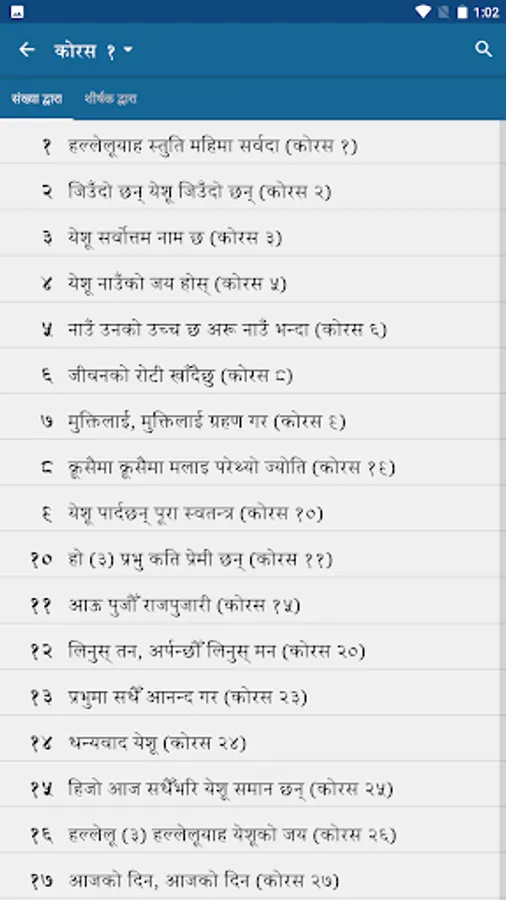 1:02
कोरस १
संख्या द्वारा शीर्षक द्वारा
१ हल्लेलूयाह स्तुति महिमा सर्वदा (कोरस १)
२ जिउँदो छन् येशू जिउँदो छन् (कोरस २)
३ येशू सर्वोत्तम नाम छ (कोरस ३)
४ येशू नाउँको जय होस् (कोरस ५)
५ नाउँ उनको उच्च छ अरू नाउँ भन्दा (कोरस ६)
६ जीवनको रोटी खाँदैछु (कोरस ८)
७ मुक्तिलाई, मुक्तिलाई ग्रहण गर (कोरस ९)
८ क्रूसैमा क्रूसैमा मलाइ परेथ्यो ज्योति (कोरस १९)
९ येशू पार्दछन् पूरा स्वतन्त्र (कोरस १०)
१० हो (३) प्रभु कति प्रेमी छन् (कोरस ११)
११ आऊ पुजौँ राजपुजारी (कोरस १५)
१२ लिनुस् तन, अर्पन्छौँ लिनुस् मन (कोरस २०)
१३ प्रभुमा सधैँ आनन्द गर (कोरस २३)
१४ धन्यवाद येशू (कोरस २४)
१५ हिजो आज सधैँभरि येशू समान छन् (कोरस २५)
१६ हल्लेलू (३) हल्लेलूयाह येशूको जय (कोरस २६)
१७ आजको दिन, आजको दिन (कोरस २७)